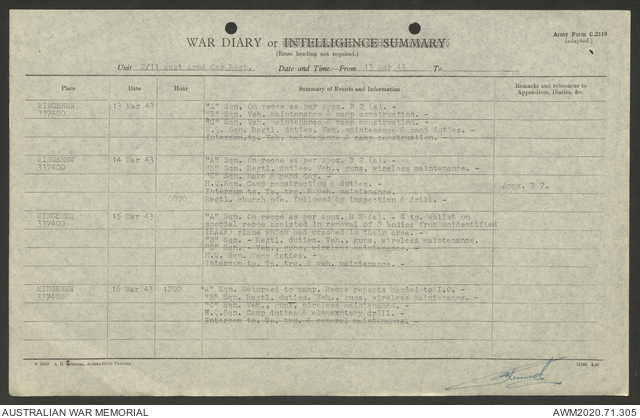 Army Form C.2118
(adapted.)
WAR DIARY or INTELLIGENCE SUMMARY
(Erase heading not required.)
Unit 2/11 Aust Armd Car Regt. Date and Time—From 13 Mar 43 To
Place Date Hour Summary of Events and Information Remarks and references to
Appendices, Diaries, &c.
MINGENEW 13 Mar 43 "A" Sqn. On recce as per Appx. B 2 (a). -
337400 "B" Sqn. Veh. maintenance & camp construction. -
"C" Sqn. Veh. maintenance & camp construction. -
H.Q. Sqn. Regtl. duties. Veh. maintenance & camp duties. -
Intercom tp. Veh. maintenance & camp construction. -
MINGENEW 14 Mar 43 "A" Sqn. On recce as per Appx. B 2 (a). -
337400 "B" Sqn Regtl duties. Veh., guns, wireless maintenance. -
"C" Sqn. Make & mend day. -
H.Q.Sqn. Camp construction & duties. - Appx. B 7.
Intercom tp. Tp. trg. & veh. maintenance.
0800 Regtl. church pde. followed by inspection & drill. -
MINGENEW 15 Mar 43 "A" Sqn. On recce as per Appx. B 2 (a). - 4 tp. whilst on
337400 special recce assisted in removal of 3 bodies from unidentified
(RAAF) plane which had crashed in their area. -
"B" Sqn. - Regtl. duties. Veh., guns, wireless maintenance.
"C" Sqn. - Veh., guns, wireless maintenance. -
H.Q. Sqn. Camp duties. -
Intercom tp. Tp. trg. & veh. maintenance. -
MINGENEW 16 Mar 43 1200 "A" Sqn. Returned to camp. Recce reports handed to I.O. -
337400 "B" Sqn. Regtl. duties. Veh., guns, wireless maintenance. -
"C" Sqn. Veh., guns, wireless maintenance. -
H.Q.Sqn. Camp duties & elementary drill. -
Intercom tp. Tp. trg. & general maintenance. -
AUSTRALIAN WAR MEMORIAL AWM2020.71.305